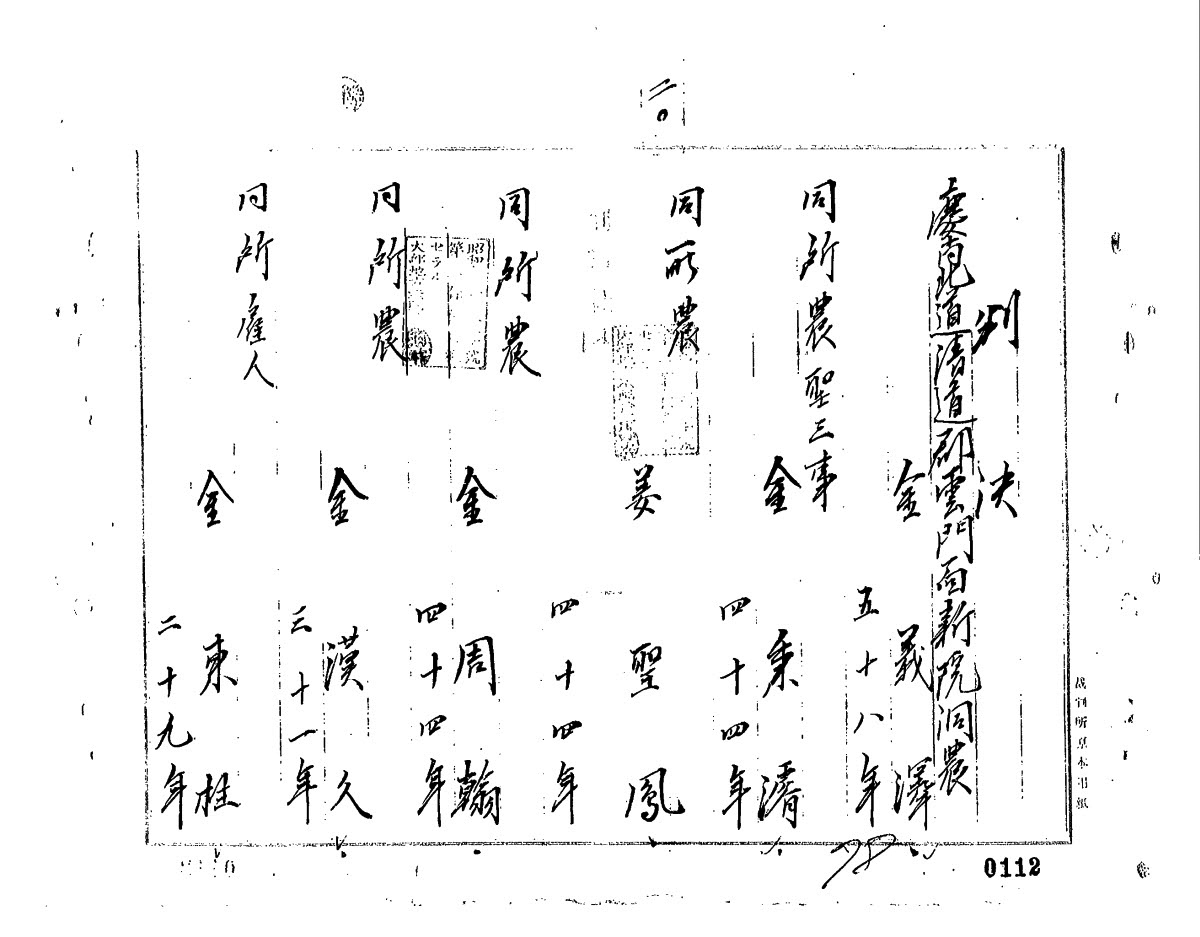 二〇
判決
慶尚北道清道郡雲門面新院洞農
金義澤
五十八年
同所農聖三事
金秉濬
四十四年
同所農
姜聖鳳
四十四年
同所農
金周翰
四十四年
同所農
金漢久
三十一年
同所雇人
金東柱
二十九年
裁判所草本用紙
0112